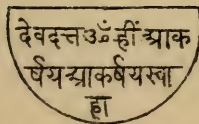 देवदत्त ॐ ह्रीं आक
र्षय आकर्षय स्वा
हा